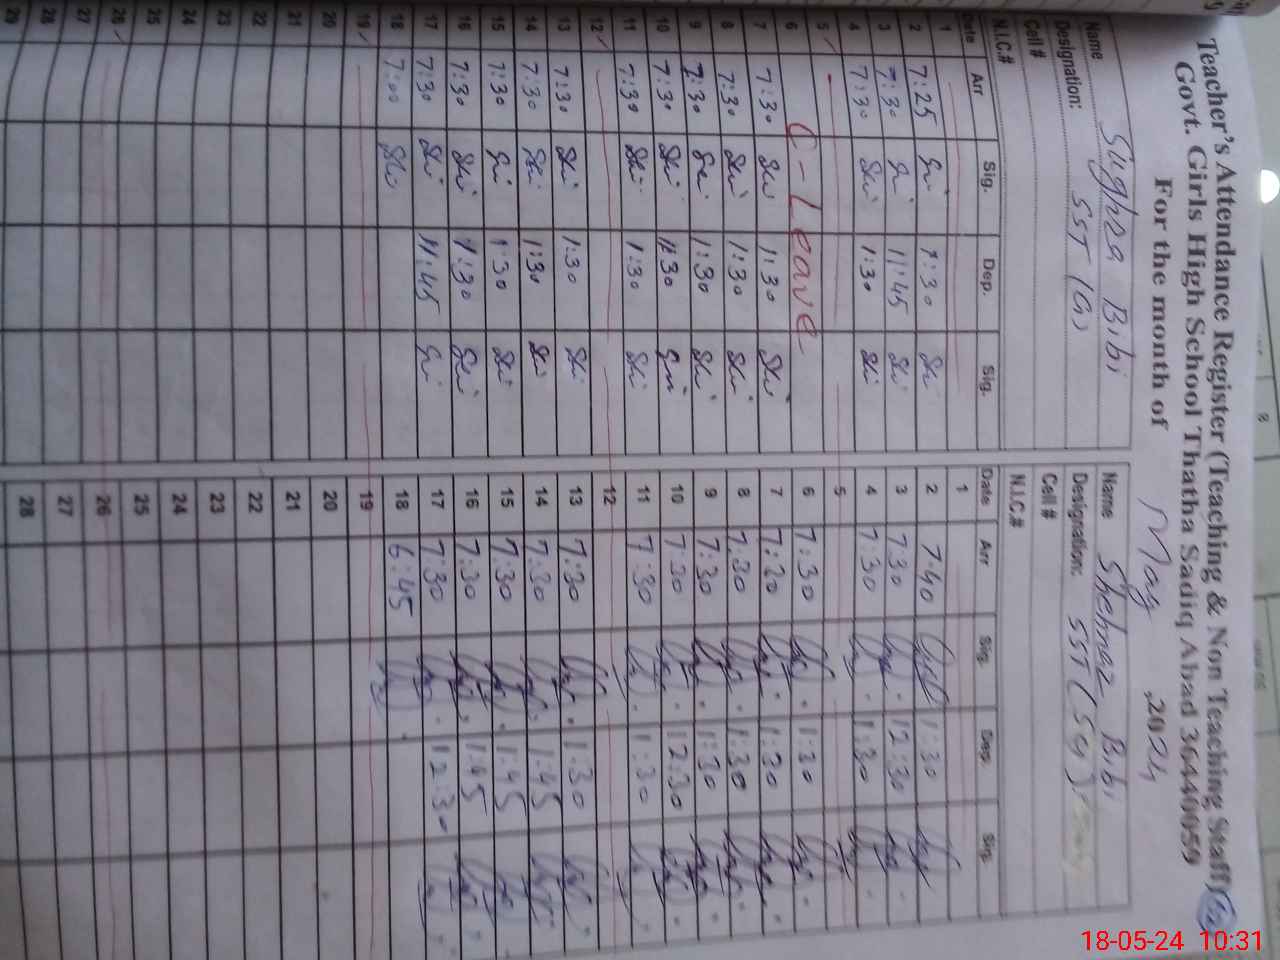 Teacher's Attendance Register (Teaching & Non Teaching Staff)
Govt. Girls High School Thatha Sadiq Abad 36440059
For the month of May 2024
Name Sughra Bibi
Designation: SST (G)
Cell #
N.I.C.#
Date Arr Sig. Dep. Sig.
1
2 7:25 1:30
3 7:30 11:45
4 7:30 1:30
5
6 C-Leave
7 7:30 1:30
8 7:30 1:30
9 7:30 1:30
10 7:30 11:30
11 7:30 1:30
12
13 7:30 1:30
14 7:30 1:30
15 7:30 1:30
16 7:30 1:30
17 7:30 11:45
18 7:00
19
20
21
22
23
24
25
26
27
28
29
Name Shehnaz Bibi
Designation: SST (Sci)
Cell #
N.I.C.#
Date Arr Sig. Dep. Sig.
1
2 7:40 1:30
3 7:30 12:30
4 7:30 1:30
5
6 7:30 1:30
7 7:20 1:30
8 7:30 1:30
9 7:30 1:30
10 7:30 12:30
11 7:30 1:30
12
13 7:30 1:30
14 7:30 1:45
15 7:30 1:45
16 7:30 1:45
17 7:30 12:30
18 6:45
19
20
21
22
23
24
25
26
27
28
18-05-24 10:31